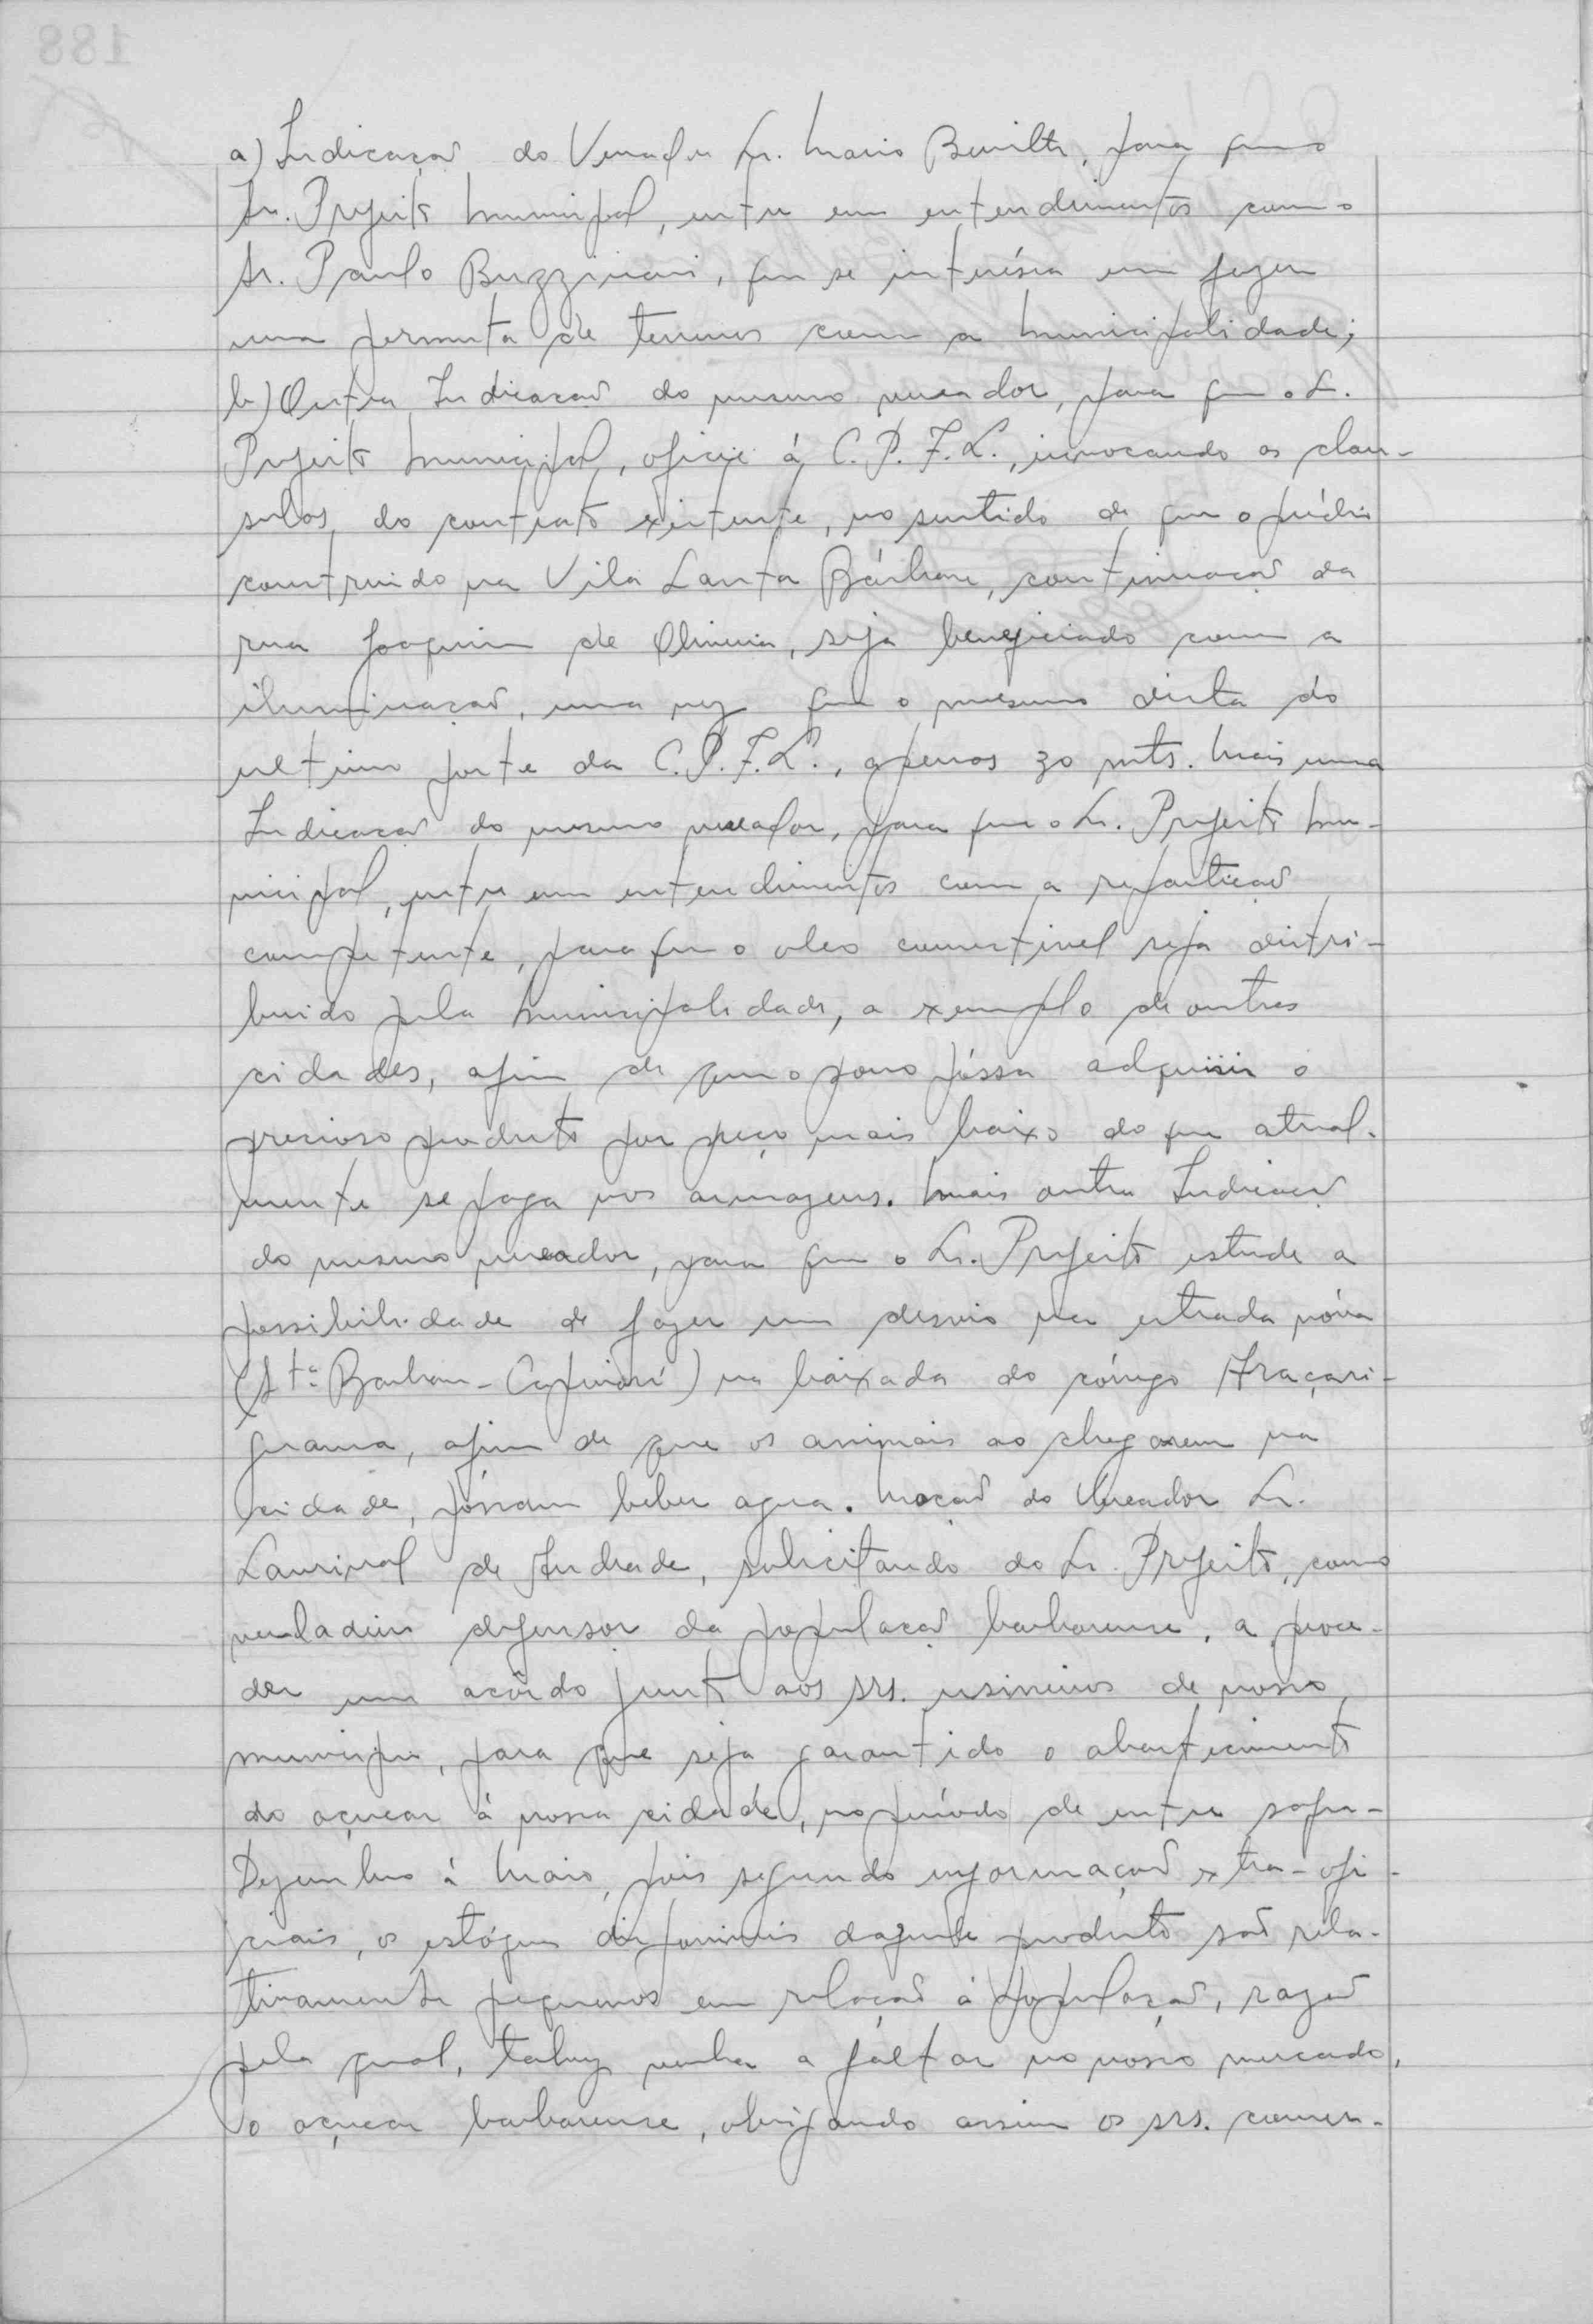 a) Indicação do Vereador Sr. Mario Boschi, para que o
Sr. Prefeito Municipal, entre em entendimentos com o
Sr. Paulo Buzzinari, que se interéssa em fazer
uma permuta de terrenos com a Municipalidade;
b) Outra Indicação do mesmo vereador, para que o Sr.
Prefeito Municipal, oficie á C.P.F.L., invocando as clau-
sulas, do contrato existente, no sentido de que o prédio
construido na Vila Santa Bárbara, continuação da
rua Joaquim de Oliveira, seja beneficiado com a
iluminação, uma vez que o mesmo dista do
ultimo poste da C.P.F.L., apenas 30 mts. Mais uma
Indicação do mesmo vereador, para que o Sr. Prefeito Mu-
nicipal, entre em entendimentos com a repartição
competente, para que o oleo comestivel seja distri-
buido pela Municipalidade, a exemplo de outras
cidades, afim de que o povo póssa adquirir o
precioso produto por preço mais baixo do que atual-
mente se paga nos armazens. Mais outra Indicação
do mesmo vereador, para que o Sr. Prefeito estude a
possibilidade de fazer um desvio na estrada nóva
(Sta. Barbara - Capivari) na baixada do córrego Araçari-
guama, afim de que os animais ao chegarem na
cidade, póssam beber agua. Moção do Vereador Sr.
Laurival de Andrade, solicitando do Sr. Prefeito, como
verdadeiro defensor da população barbarense, a proce-
der um acôrdo junto aos srs. usineiros de nosso
municipio, para que seja garantido o abastecimento
do açucar á nossa cidade, no período de entre safra-
Dezembro á Maio, pois segundo informação extra-ofi-
ciais, os estóques disponiveis daquele produto são rela-
tivamente pequenos em relação á população, razão
pela qual, talvez venha a fáltar no nosso mercado,
o açucar barbarense, obrigando assim os srs. comer-